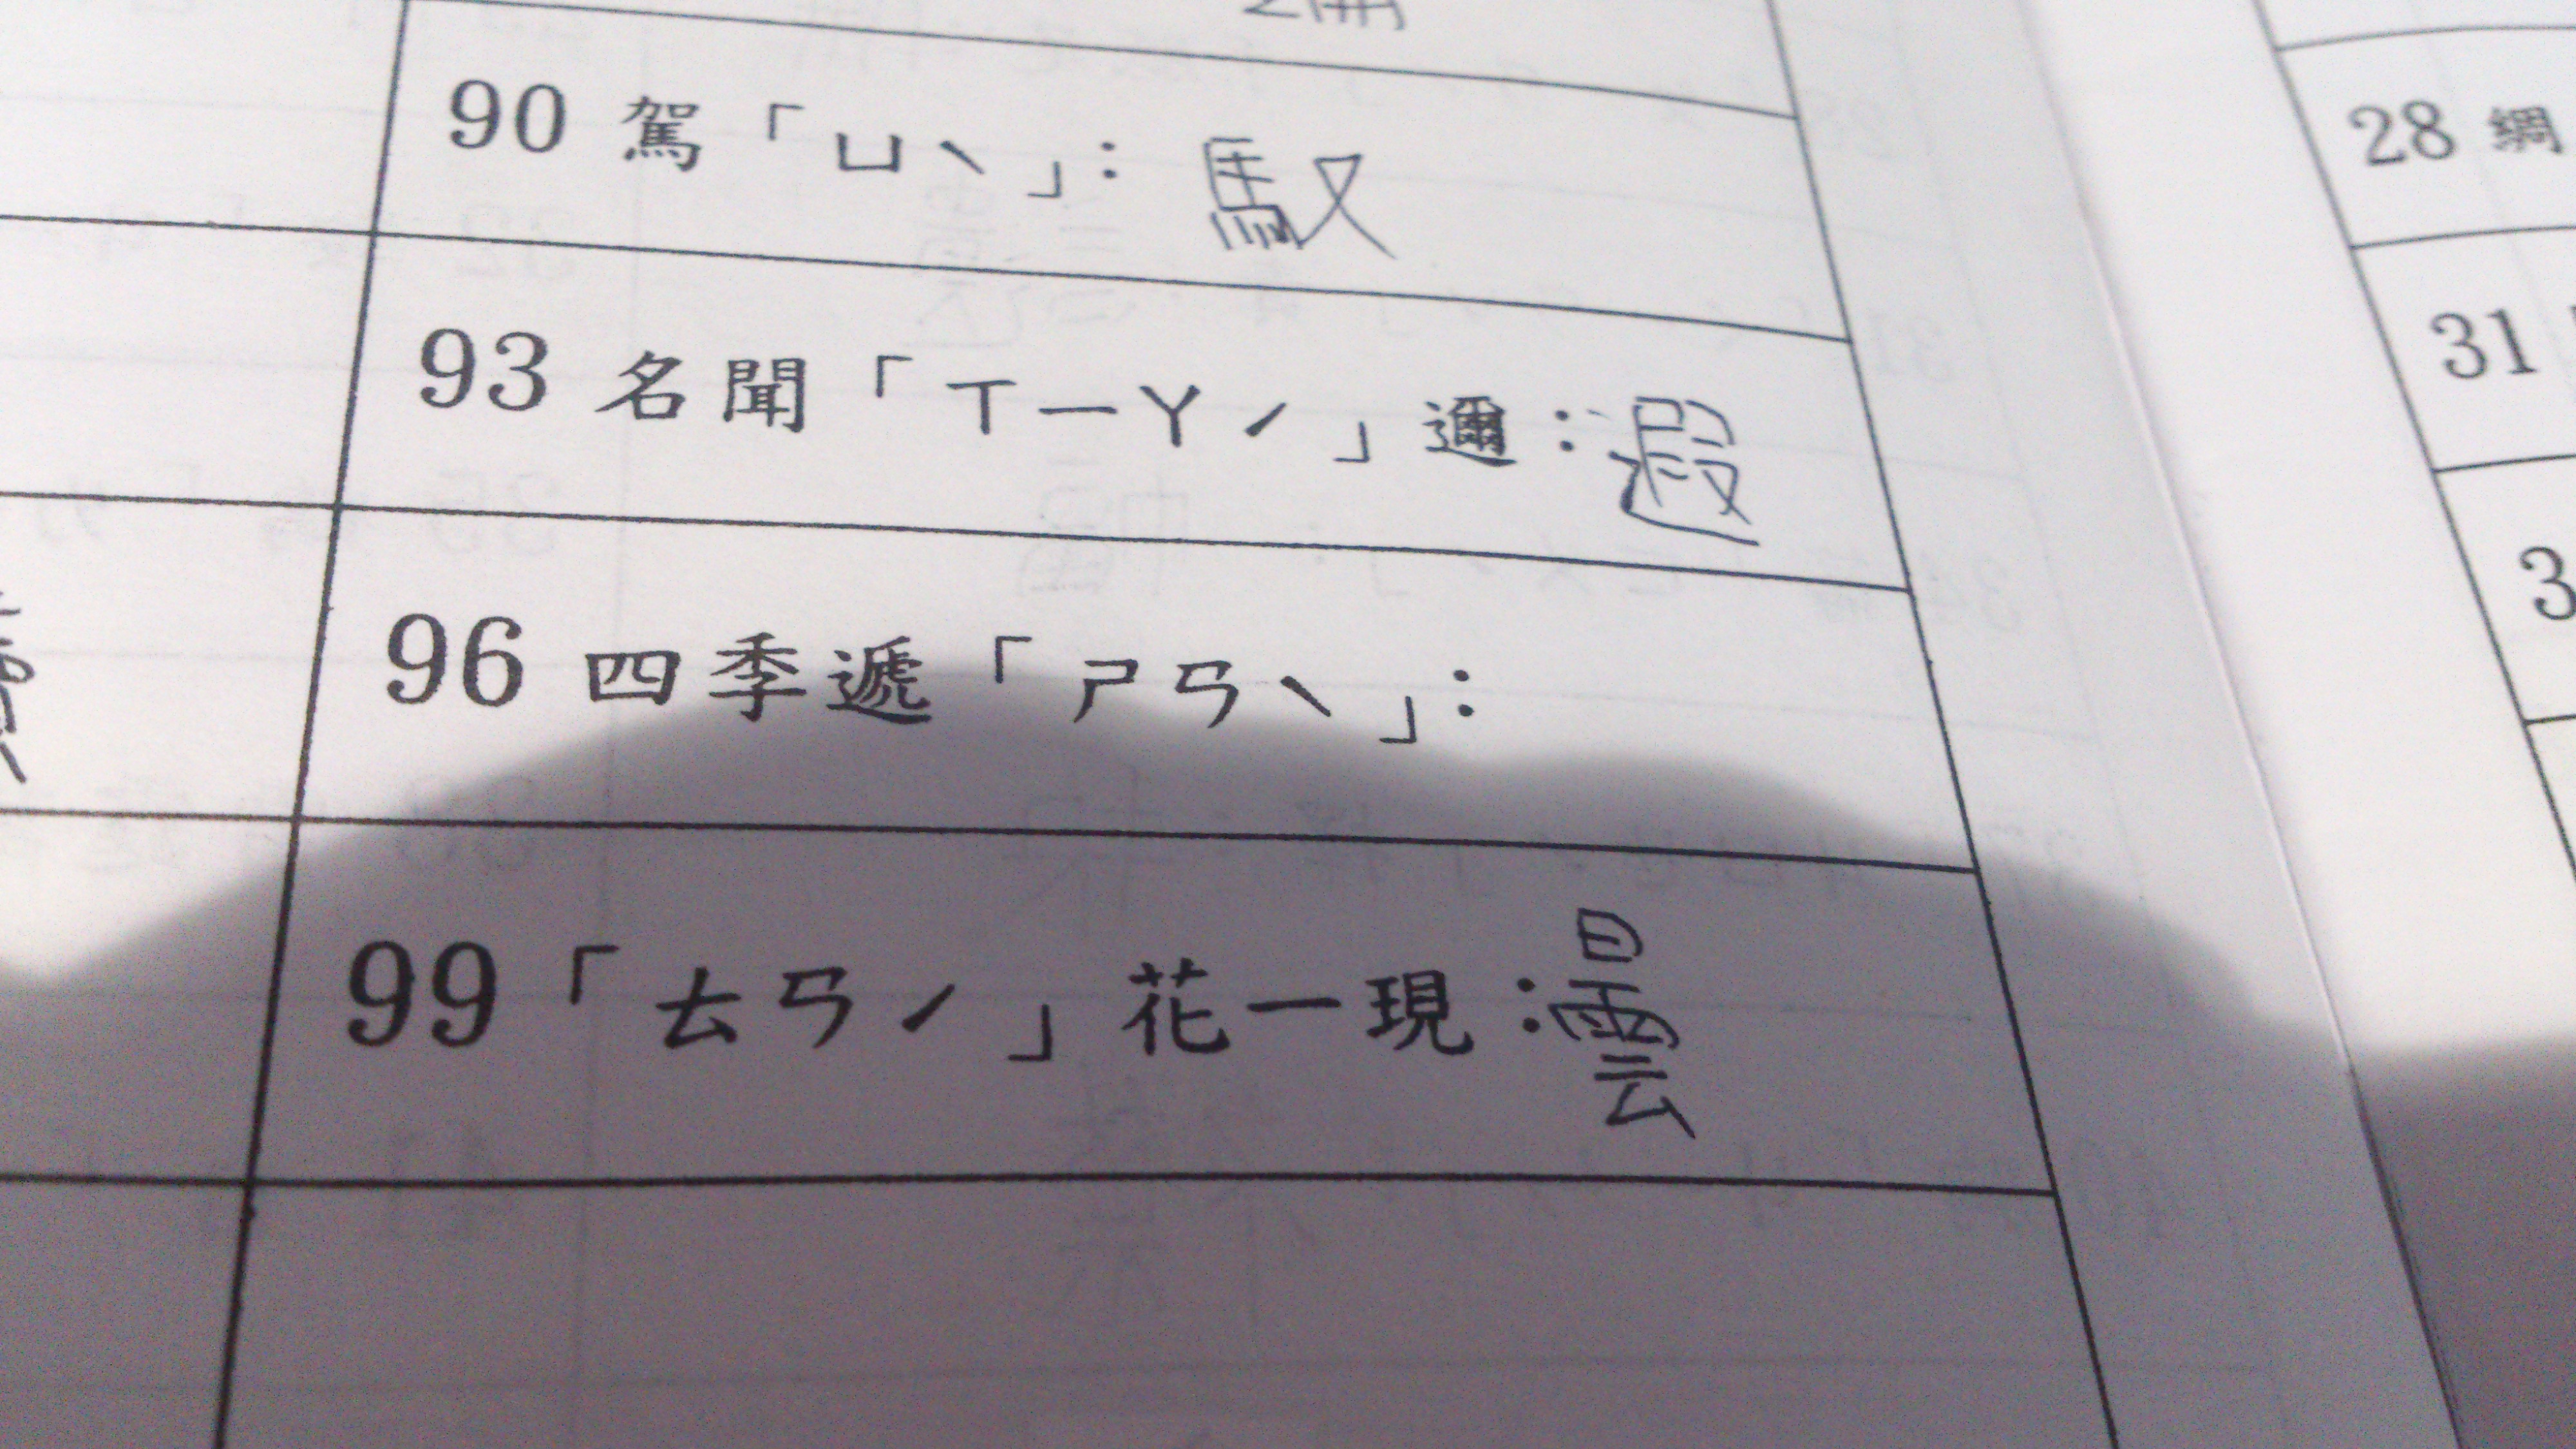 90 駕「ㄩˋ」：馭
28 綱
93 名聞「ㄒㄧㄚˊ」邇：遐
31
96 四季遞「ㄕㄢˋ」：
3
99「ㄊㄢˊ」花一現：曇